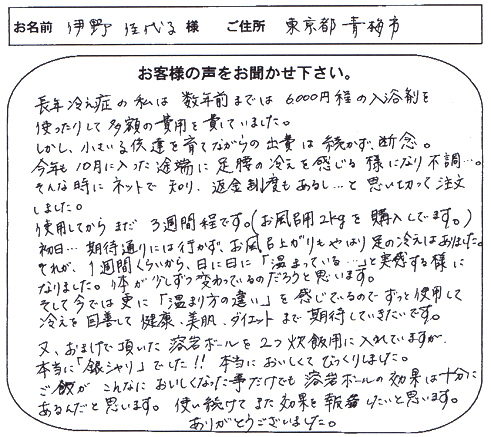 お名前 伊野 佳代子 様 ご住所 東京都青梅市
お客様の声をお聞かせ下さい。
長年冷え症の私は数年前までは6000円程の入浴剤を
使ったりして多額の費用を費していました。
しかし、小さい子供達を育てながらの出費は続かず、断念。
今年も10月に入った途端に足腰の冷えを感じる様になり不調…。
そんな時にネットで知り、返金制度もあるし…と思い切って注文
しました。
使用してからまだ3週間程です。(お風呂用2kgを購入しています。)
初日…期待通りには行かず、お風呂上がりもやはり足の冷えはありました。
それが、1週間くらいから、日に日に「温まっている…」と実感する様に
なりました。体が少しずつ変わっているのだろうと思います。
そして今では更に「温まり方の違い」を感じているのでずっと使用して
冷えを改善して健康、美肌、ダイエットまで期待していきたいです。
又、おまけで頂いた溶岩ボールを2つ炊飯用に入れていますが、
本当に「銀シャリ」でした!!本当においしくてびっくりしました。
ご飯がこんなにおいしくなった事だけでも溶岩ボールの効果は十分に
あるんだと思います。使い続けてまた効果を報告したいと思います。
ありがとうございました。